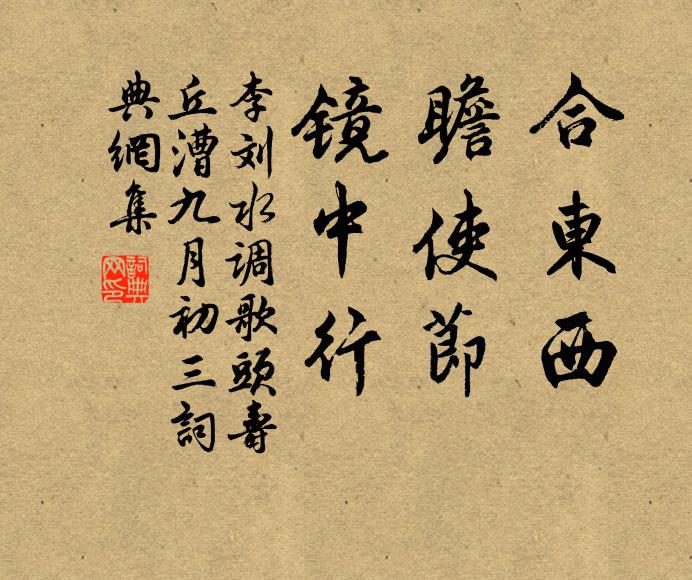 合東西
瞻使節
镜中行
李刘水调歌頭壽
丘漕九月初三詞
典網集
詞典
网印